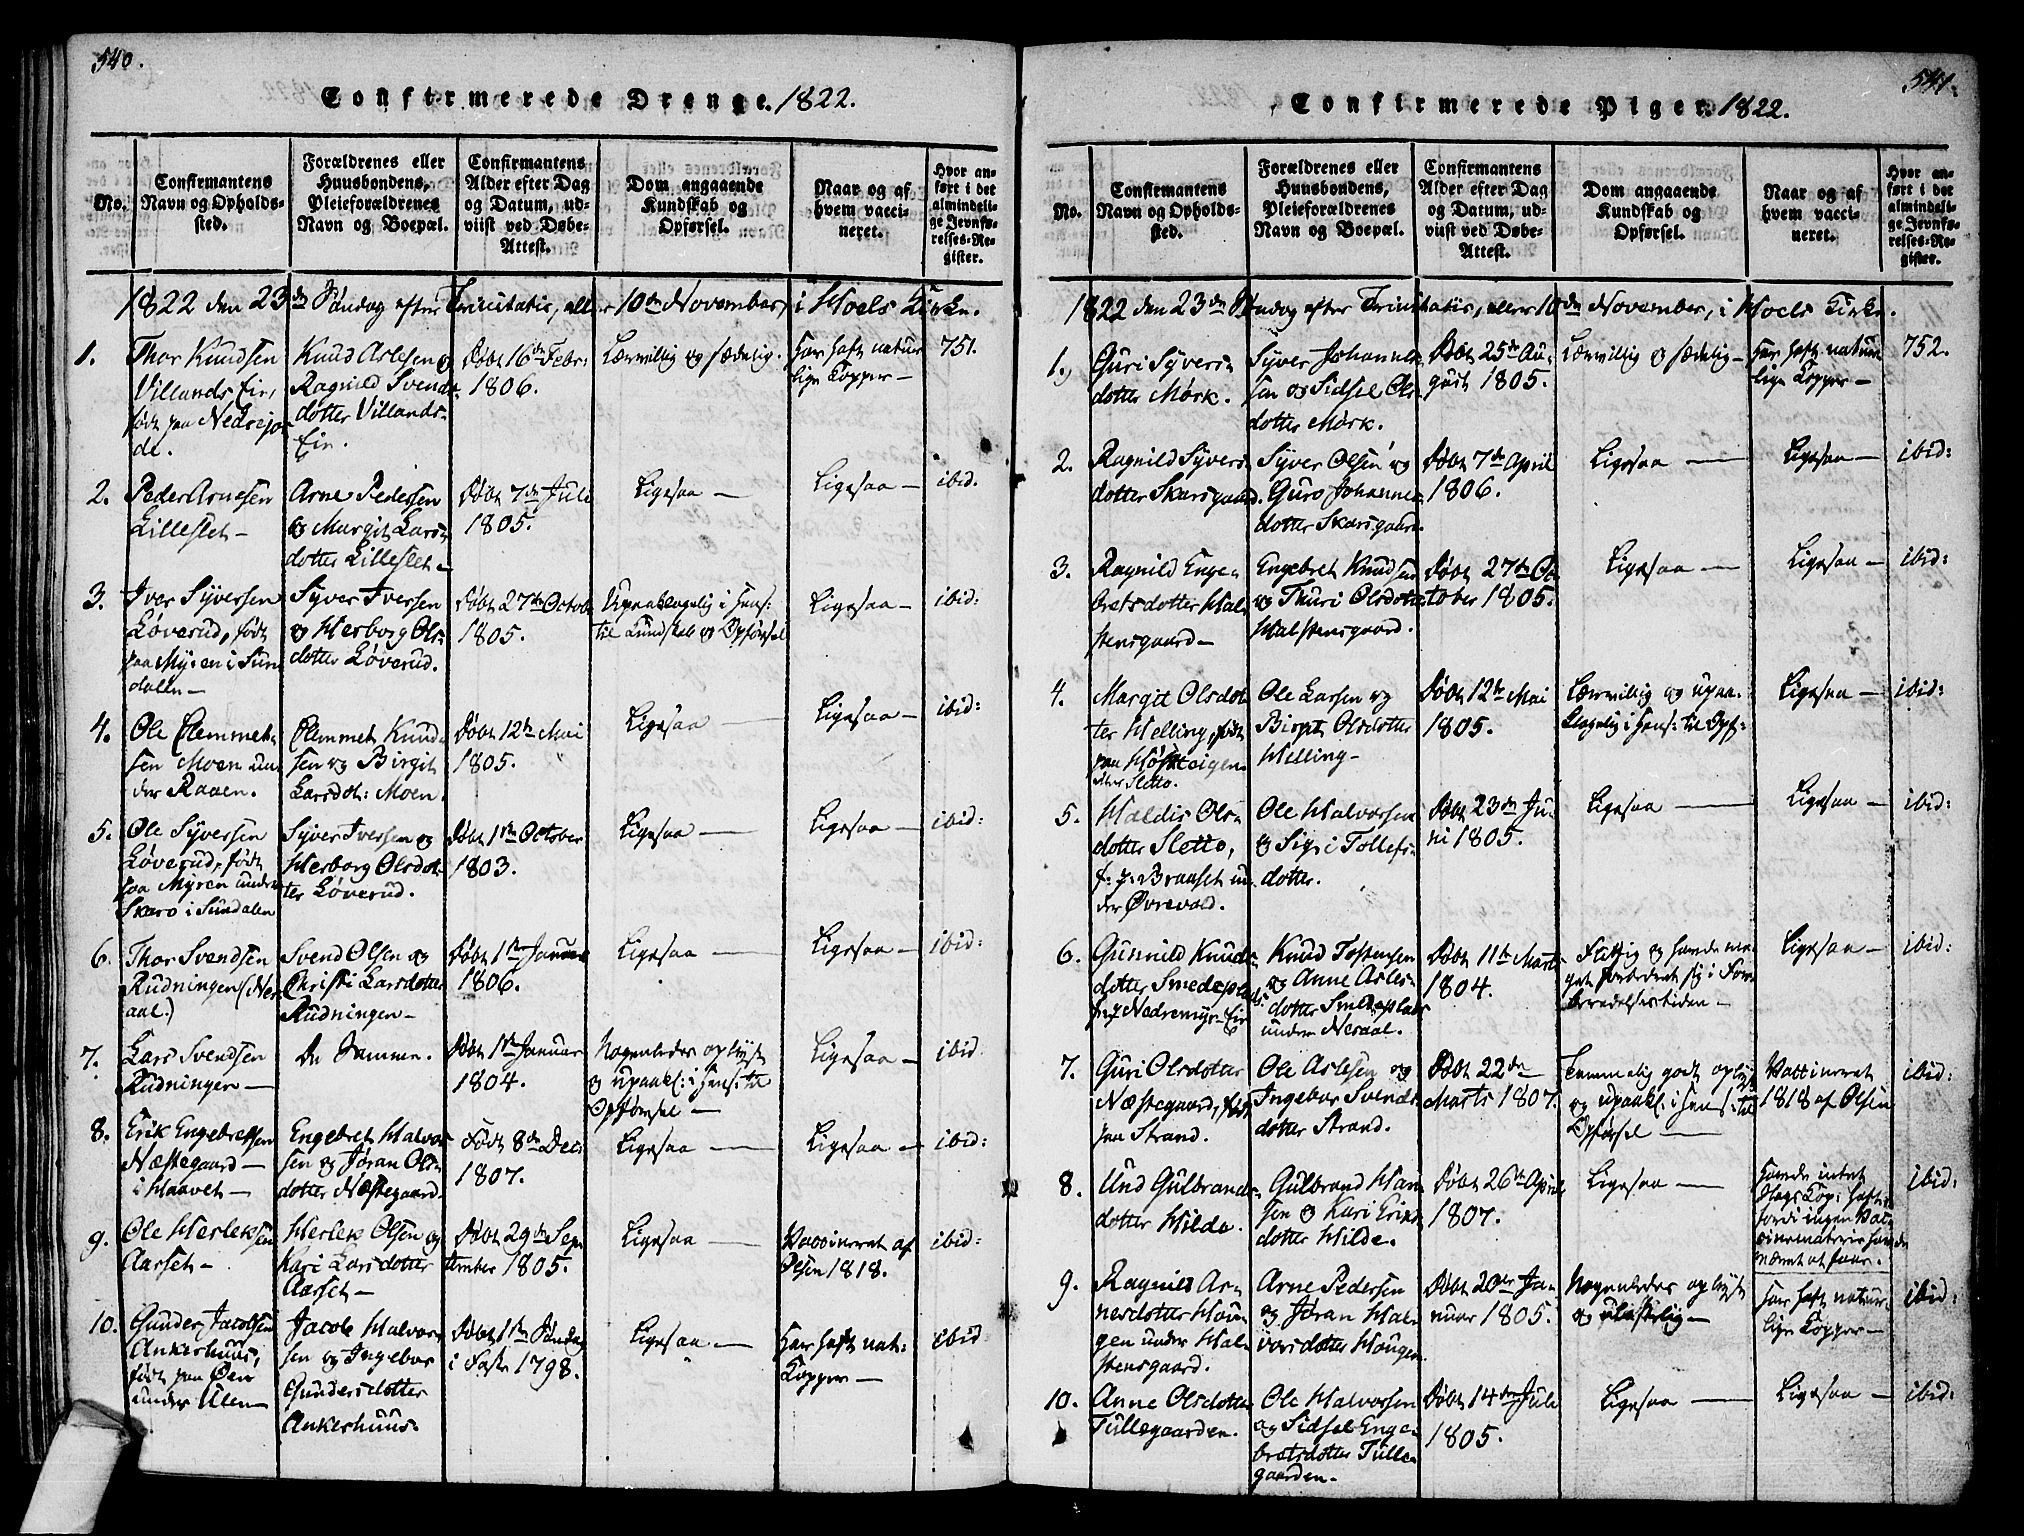 540.
Confirmerede Drenge. 1822.
No.
Confirmantens
Navn og Opholds-
sted.
Forældrenes eller
Huusbondens,
Pleieforældrenes
Navn og Boepæl.
Confirmantens
Alder efter Dag
og Datum, ud-
viist ved Døbe-
Attest.
Dom angaaende
Kundskab og
Opførsel.
Naar og af
hvem vacci-
neret.
Hvor an-
ført i det
almindeli-
ge Jevnfø-
relses-Re-
gister.
1822 den 23de Søndag efter Trinitatis, eller 10de November, i Hoels Kirke.
1.
Thor Knudsen
Villands Eie,
født paa Nedrejor-
de.
Knud Aslesen og
Ragnild Svends-
dotter Villands-
Eie.
Døbt 16de Febr:
1806.
Lærvillig og sædelig.
Har haft natur
lige Kopper —
751.
2.
Peder Arnesen
Lilleslet —
Arne Pedersen
og Margit Lars-
dotter Lilleslet —
Døbt 7de Juli
1805.
Ligesaa —
Ligesaa —
ibid.
3.
Iver Syversen
Løverud, født
paa Myren i Sun-
dalen —
Syver Iversen
og Herborg Ols-
dotter Løverud.
Døbt 27de Octob:
1805.
Upaaklagelig i Hens:
til Kundskab og Opførsel
Ligesaa —
ibid:
4.
Ole Clemmet-
sen Moen un-
der Raaen.
Clemmet Knud-
sen og Birgit
Larsdot: Moen.
Døbt 12te Mai
1805.
Ligesaa —
Ligesaa —
ibid:
5.
Ole Syversen
Løverud, født
paa Myren under
Skaro i Sundalen
Syver Iversen og
Herborg Olsdot-
ter Løverud.
Døbt 1ste October
1803.
Ligesaa —
Ligesaa —
ibid:
6.
Thor Svendsen
Rudningen (Nes-
aal.)
Svend Olsen og
Christi Larsdotter
Rudningen —
Døbt 1ste Januar
1806.
Ligesaa —
Ligesaa —
ibid:
7.
Lars Svendsen
Rudningen —
De Samme.
Døbt 1ste Januar
1804.
Nogenledes oplyst
og upaakl: i Hens: til
Opførsel —
Ligesaa —
ibid.
8.
Erik Engebretsen
Næstegaard —
i Haavet —
Engebret Halvor
sen og Jøran Ols-
dotter Næstegaard.
Født 8de Dec:
1807.
Ligesaa —
Ligesaa —
ibid:
9.
Ole Herleksen
Aarset —
Herlek Olsen og
Kari Larsdotter
Aarset —
Døbt 29de Sep-
tember 1805.
Ligesaa —
Vaccineret af
Olsen 1818.
ibid:
10.
Gunder Jacobsen
Ankerhuus,
født paa Øen
under Ulen —
Jacob Halvor-
sen og Ingebor
Gundersdotter
Ankerhuus.
Døbt 1ste Søndag
i Faste 1798.
Ligesaa —
Har haft nat:
Kopper —
ibid
541.
Confirmerede Piger. 1822.
No.
Confirmantens
Navn og Opholds-
sted.
Forældrenes eller
Huusbondens,
Pleieforældrenes
Navn og Boepæl.
Confirmantens
Alder efter Dag
og Datum, ud-
viist ved Døbe-
Attest.
Dom angaaende
Kundskab og
Opførsel.
Naar og af
hvem vacci-
neret.
Hvor an-
ført i det
almindeli-
ge Jevnfø-
relses-Re-
gister.
1822 den 23de Søndag efter Trinitatis, eller 10de November, i Hoels Kirke.
1.
Guri Syvers-
dotter Mørk.
Syver Johannes-
sen og Sidsel Ols-
dotter Mørk.
Døbt 25de Au-
gust 1805.
Lærvillig og sædelig —
Har haft natur
lige Kopper —
752.
2.
Ragnild Syvers-
dotter Skarsgaard.
Syver Olsen og
Guro Johannes-
dotter Skarsgaard.
Døbt 7de April
1806.
Ligesaa —
Ligesaa —
ibid:
3.
Ragnild Enge-
bretsdotter Hal-
stensgaard —
Engebret Knudsen
og Thuri Olsdotter
Halstensgaard.
Døbt 27de Oc-
tober 1805.
Ligesaa —
Ligesaa —
ibid:
4.
Margit Olsdot-
ter Helling, født
paa Høsteigen
under Sletto.
Ole Larsen og
Birgit Olsdotter
Helling —
Døbt 12te Mai
1805.
Lærvillig og upaa-
klagelig i Hens: til Opf:
Ligesaa —
ibid:
5.
Haldis Ols-
dotter Sletto,
f: p: Braaset un-
der Øvrevold.
Ole Halvorsen
og Sigri Tollefs-
dotter.
Døbt 23de Ju-
ni 1805.
Ligesaa —
Ligesaa —
ibid:
6.
Gunnild Knuds-
dotter Smedsplads:
f: p: Nedremyr-Eie
Knud Tostensen
og Anne Asles-
dotter Smedsplads
under Nesaal.
Døbt 11te Marts
1804.
Flittig og havde me-
get forbedret sig i For-
beredelsestiden —
Ligesaa —
ibid:
7.
Guri Olsdotter
Næstegaard, født
paa Strand.
Ole Aslesen og
Ingebor Svends-
dotter Strand.
Døbt 22de
Marts 1807.
Temmelig godt oplyst
og upaakl: i Hens: til
Opførsel —
Vaccineret
1818 af Olsen
ibid:
8.
Und Gulbrands-
dotter Hilde.
Gulbrand Han-
sen og Kari Eriks-
dotter Hilde.
Døbt 26de April
1807.
Ligesaa —
Havde intet
Slags Kop: haft
fordi ingen Vac-
cinematerie havde
været at faae.
ibid:
9.
Ragnild Ar-
nesdotter Hau-
gen under Hal-
stensgaard.
Arne Pedersen
og Jøran Hal-
vorsdotter Haugen
Døbt 20de Ja-
nuar 1805.
Nogenledes oplyst
og ulastelig —
Har haft natur-
lige Kopper —
ibid:
10.
Anne Olsdotter
Tullegaarden.
Ole Halvorsen
og Sidsel Enge-
bretsdotter Tulle-
gaarden.
Døbt 14de Juli
1805.
Ligesaa —
Ligesaa —
ibid: